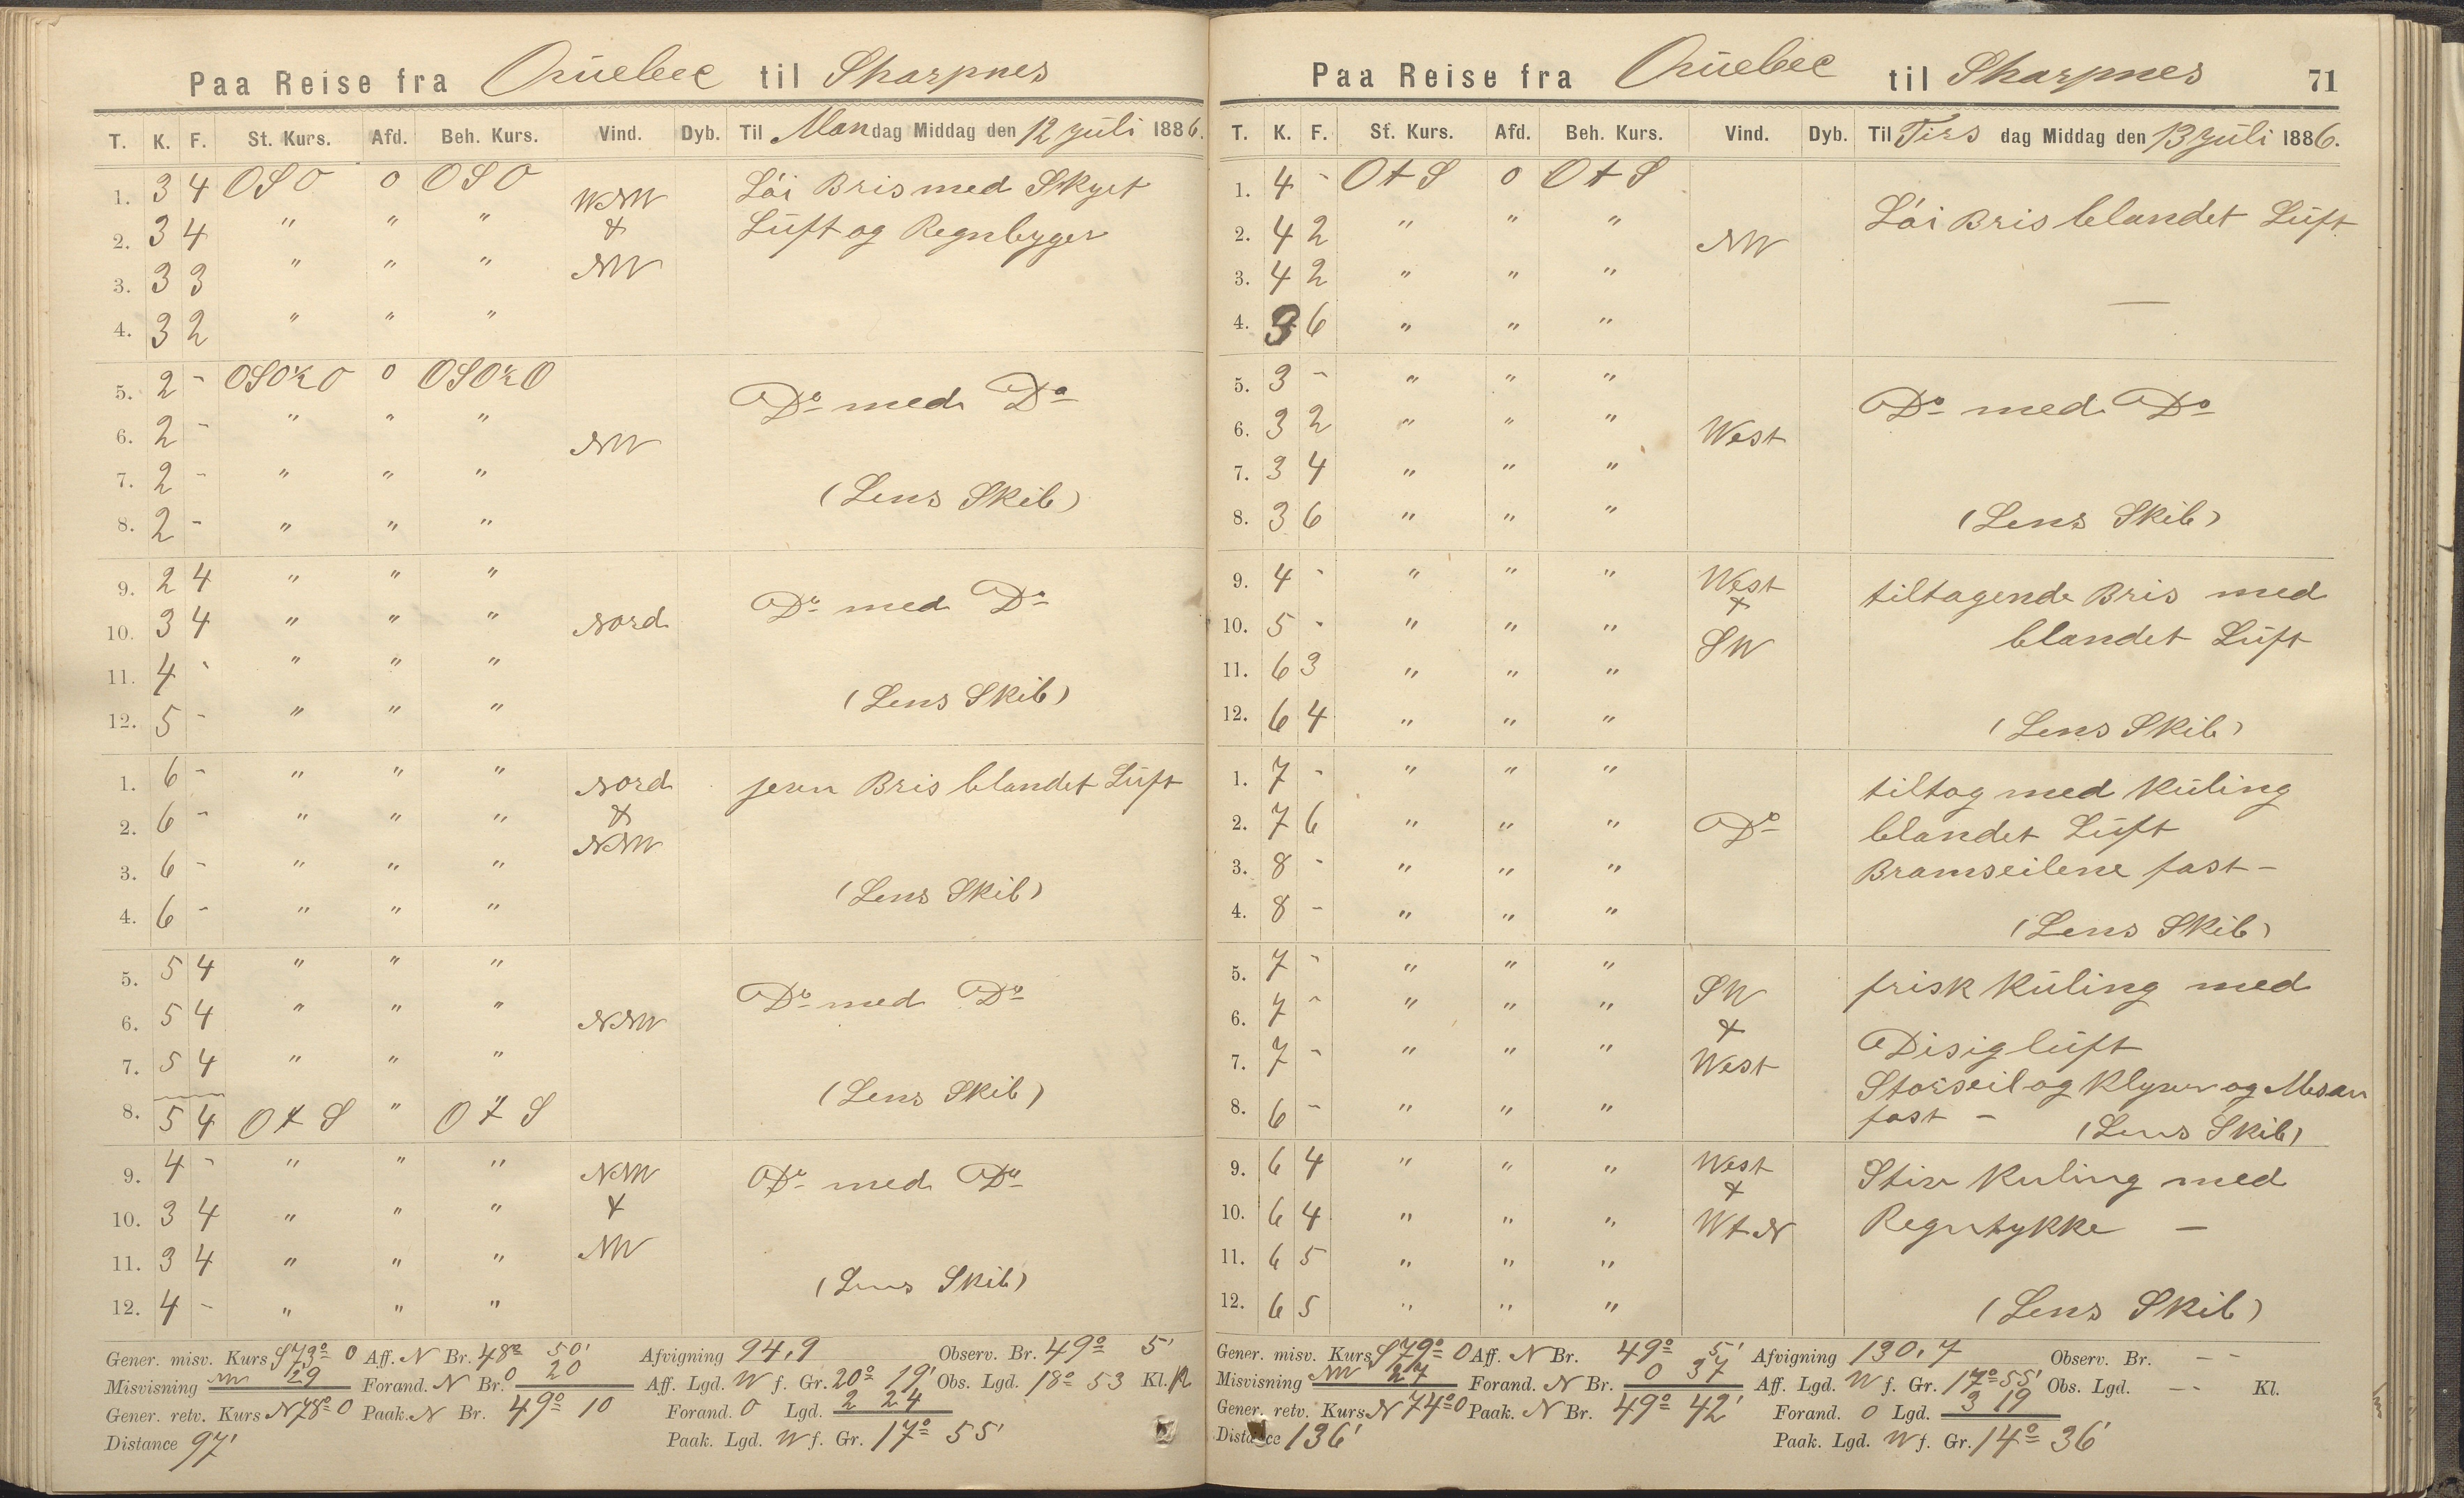 Paa Reise fra Quebec til Sharpnes
T. K. F. St. Kurs. Afd. Beh. Kurs. Vind. Dyb. Til Mandag Middag den 12 Juli 1886.
1. 3 4 OSO 0 OSO WNW Löi Bris med Skyet
2. 3 4 " " " & Luft og Regnbyger
3. 3 3 " " " NW
4. 3 2 " " "
5. 2 - OSO½O 0 OSO½O Do med Do
6. 2 - " " " NW
7. 2 - " " " (Lens Skib)
8. 2 - " " "
9. 2 4 " " " Do med Do
10. 3 4 " " " Nord
11. 4 - " " "
12. 5 - " " " (Lens Skib)
1. 6 - " " " Nord jevn Bris blandet Luft
2. 6 - " " " &
3. 6 - " " " NNW
4. 6 - " " " (Lens Skib)
5. 5 4 " " " Do med Do
6. 5 4 " " " NNW
7. 5 4 " " "
8. 5 4 O t S " O t S (Lens Skib)
9. 4 - " " " NNW Do med Do
10. 3 4 " " " &
11. 3 4 " " " NW
12. 4 - " " " (Lens Skib)
Gener. misv. Kurs S 73° O Aff. N Br. 48° 50' Afvigning 94,9 Observ. Br. 49° 5'
Misvisning 29 Forand. N Br. 0 20 Aff. Lgd. W f. Gr. 20° 19' Obs. Lgd. 18° 53 Kl. 12
Gener. retv. Kurs N 78° O Paak. N Br. 49° 10 Forand. O Lgd. 2 24
Distance 97' Paak. Lgd. W f. Gr. 17° 55'
Paa Reise fra Quebec til Sharpnes 71
T. K. F. St. Kurs. Afd. Beh. Kurs. Vind. Dyb. Til Tirsdag Middag den 13 Juli 1886.
1. 4 - O t S 0 O t S
2. 4 2 " " " NW Löi Bris blandet Luft
3. 4 2 " " "
4. 3 6 " " " —
5. 3 - " " " Do med Do
6. 3 2 " " " West
7. 3 4 " " "
8. 3 6 " " " (Lens Skib)
9. 4 - " " " West tiltagende Bris med
10. 5 - " " " & blandet Luft
11. 6 3 " " " SW
12. 6 4 " " " (Lens Skib)
1. 7 - " " " tiltog med Kuling
2. 7 6 " " " Do blandet Luft
3. 8 - " " " Bramseilene fast -
4. 8 - " " " (Lens Skib)
5. 7 - " " " SW frisk Kuling med
6. 7 - " " " & Disig luft
7. 7 - " " " West Storseil og Klyver og Mesan
8. 6 - " " " fast - (Lens Skib)
9. 6 4 " " " West Stiv Kuling med
10. 6 4 " " " & Regntykke -
11. 6 5 " " " W t N
12. 6 5 " " " (Lens Skib)
Gener. misv. Kurs S 79° O Aff. N Br. 49° 5' Afvigning 130,7 Observ. Br. - -
Misvisning 27 Forand. N Br. 0 37 Aff. Lgd. W f. Gr. 17° 55' Obs. Lgd. - - Kl.
Gener. retv. Kurs N 74° O Paak. N Br. 49° 42' Forand. O Lgd. 3 19
Distance 136' Paak. Lgd. W f. Gr. 14° 36'